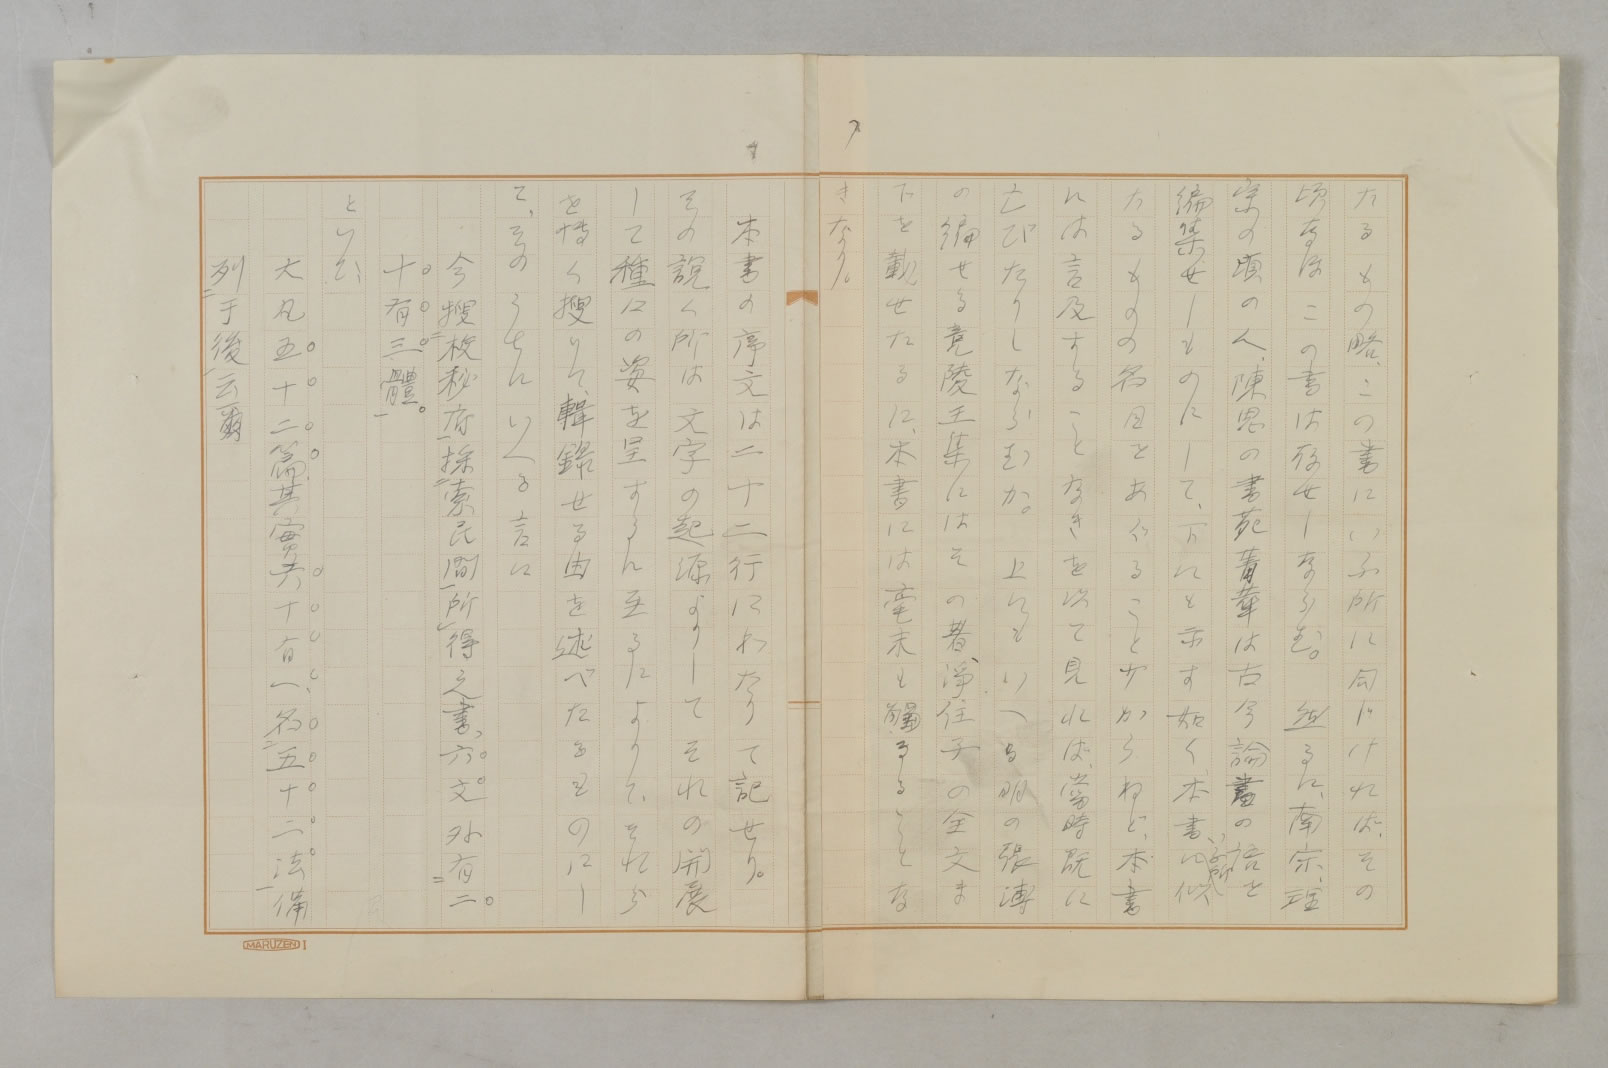 たるもの略、この書にいふ所に同じければ、その
頃なほこの書は存せしならむ。然るに、南宋、理
宗の頃の人、陳思の書苑菁華は古今論書の語を
編集せしものにして、下にも示す如く本書に似
いふ所
たるものの名目をあぐること少からねど、本書
には言及することなきを以て見れば、當時既に
亡びたりしならむか。上にもいへる明の張溥
の編せる竟陵王集にはその著、淨住子の全文ま
でを載せたるに、本書には毫末も觸るることな
きなり。
本書の序文は二十二行にわたりて記せり。
その説く所は文字の起源よりしてそれの開展
して種〻の姿を呈するに至るによりて、それら
を博く搜りて、輯録せる由を述べたるものにし
て、そのうちにいへる言に
今搜枚秘府採索民間所得之書、六文外有二
十有三體。
といひ、
大凡五十二篇其實六十有一、名五十二法備
列于後云爾
MARUZEN I